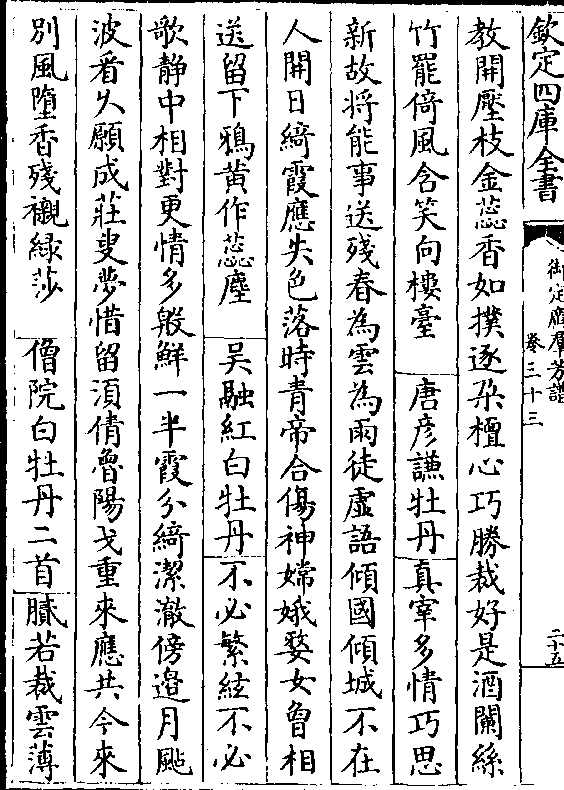 欽定四庫全書
御定廣羣芳譜
卷三十三
二十五
教開壓枝金蕊香如撲逐朶檀心巧勝裁好是酒闌絲
竹罷倚風含笑向樓臺 唐彦謙牡丹 真宰多情巧思
新故將能事送殘春為雲為雨徒虛語傾國傾城不在
人開日綺霞應失色落時青帝合傷神嫦娥婺女曾相
送留下鴉黄作蕊塵 吳融紅白牡丹 不必繁絃不必
歌静中相對更情多殷鮮一半霞分綺潔澈傍邉月颭
波看久願成莊叟夢惜留湏倩魯陽戈重來應共今來
別風墮香殘襯綠莎 僧院白牡丹二首 膩若裁雲薄